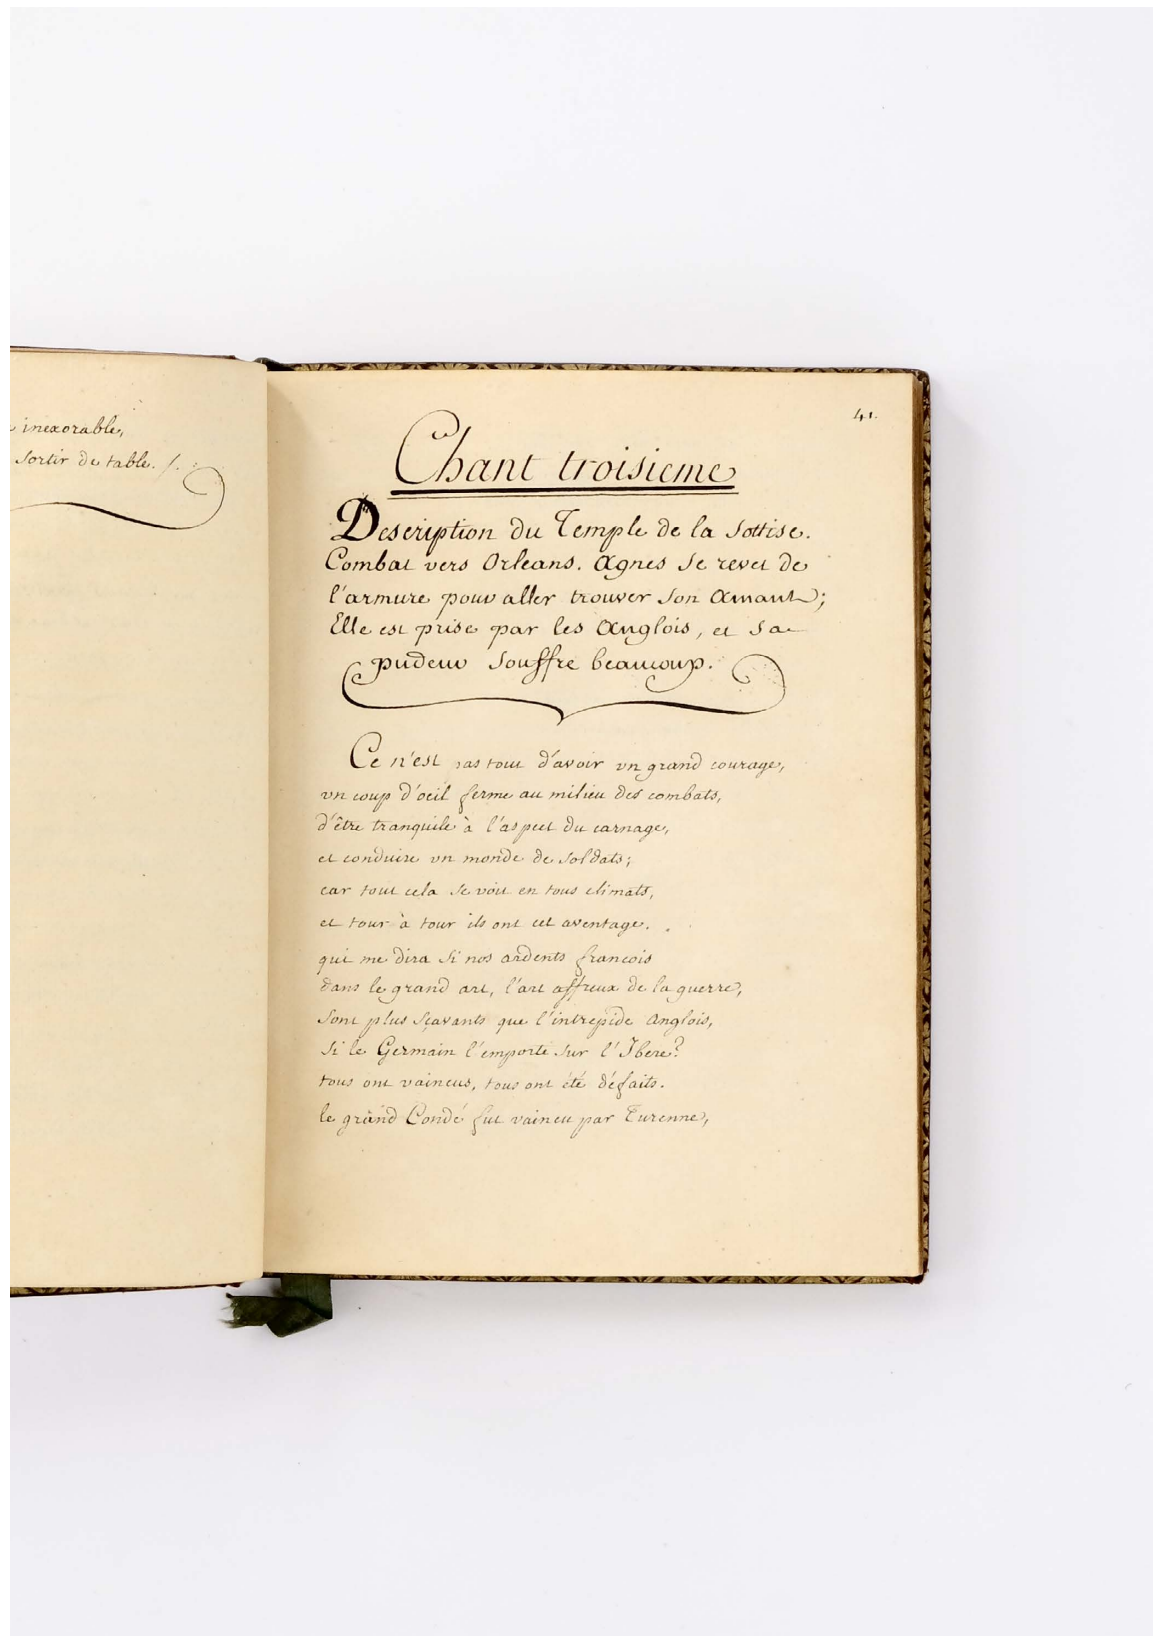 inexorable,
sortir de table. /. :
41.
Chant troisieme
Description du Temple de la Sottise.
Combat vers Orleans. Agnes se revet de
l'armure pour aller trouver son Amant;
Elle est prise par les Anglois, et sa
pudeur souffre beaucoup.
Ce n'est pas tout d'avoir vn grand courage,
vn coup d'oeil ferme au milieu des combats,
d'être tranquile à l'aspect du carnage,
et conduire vn monde de soldats;
car tout cela se voit en tous climats,
et tour à tour ils ont cet aventage.
qui me dira si nos ardents francois
dans le grand art, l'art affreux de la guerre,
sont plus sçavants que l'intrepide Anglois,
si le Germain l'emporte sur l'Ibere?
tous ont vaincus, tous ont été défaits.
le grand Condé fut vaincu par Turenne,